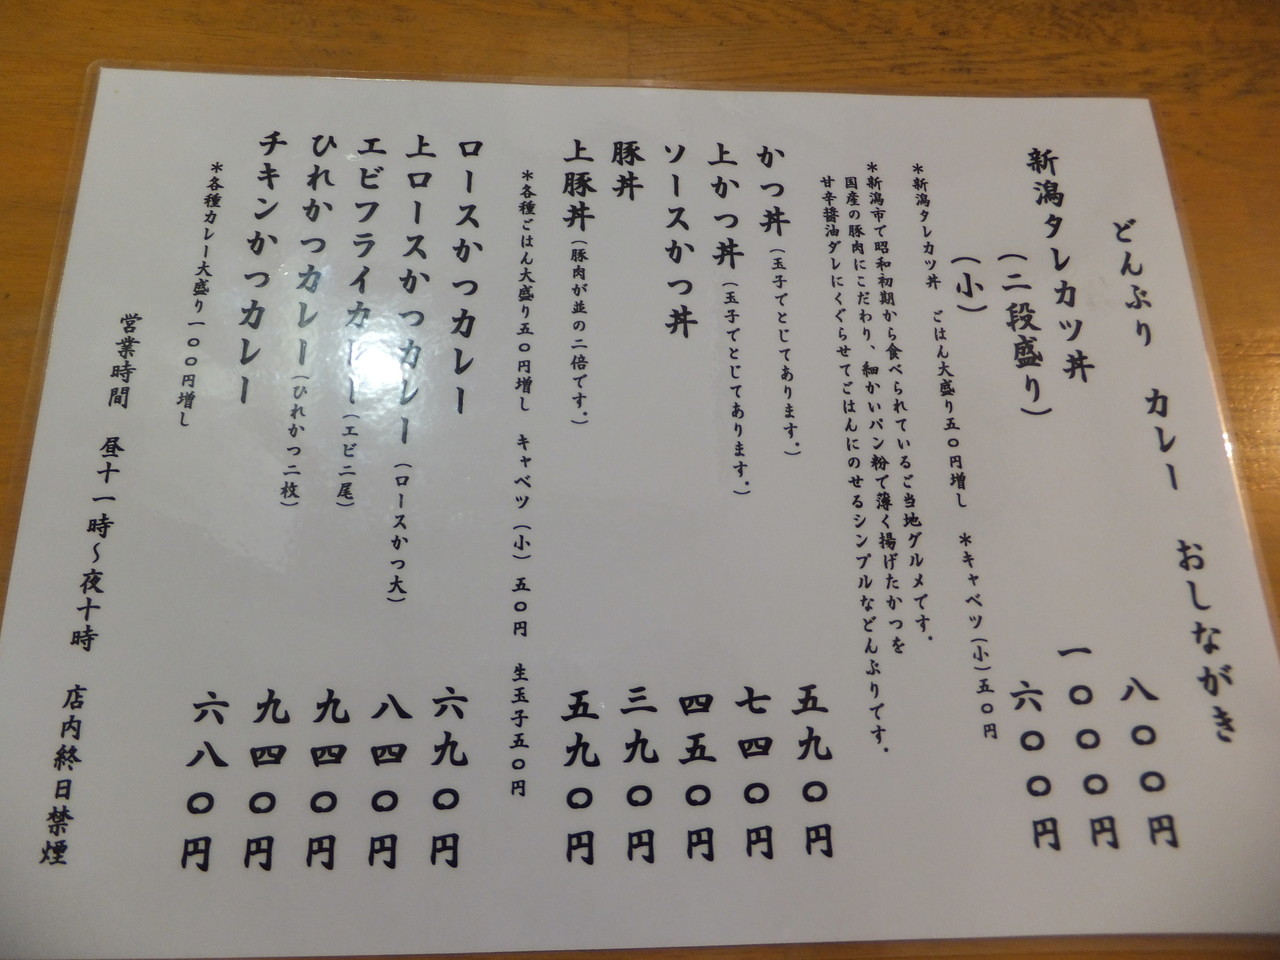 どんぶり　カレー　おしながき
新潟タレカツ丼　八〇〇円
（二段盛り）　一〇〇〇円
（小）　六〇〇円
＊新潟タレカツ丼　ごはん大盛り五〇円増し　＊キャベツ（小）五〇円
＊新潟市で昭和初期から食べられているご当地グルメです。
国産の豚肉にこだわり、細かいパン粉で薄く揚げたかつを
甘辛醤油ダレにくぐらせてごはんにのせるシンプルなどんぶりです。
かつ丼（玉子でとじてあります。）　五九〇円
上かつ丼（玉子でとじてあります。）　七四〇円
ソースかつ丼　四五〇円
豚丼　三九〇円
上豚丼（豚肉が並の二倍です。）　五九〇円
＊各種ごはん大盛り五〇円増し　キャベツ（小）五〇円　生玉子五〇円
ロースかつカレー　六九〇円
上ロースかつカレー（ロースかつ大）　八四〇円
エビフライカレー（エビ二尾）　九四〇円
ひれかつカレー（ひれかつ二枚）　九四〇円
チキンかつカレー　六八〇円
＊各種カレー大盛り一〇〇円増し
営業時間　昼十一時〜夜十時　店内終日禁煙